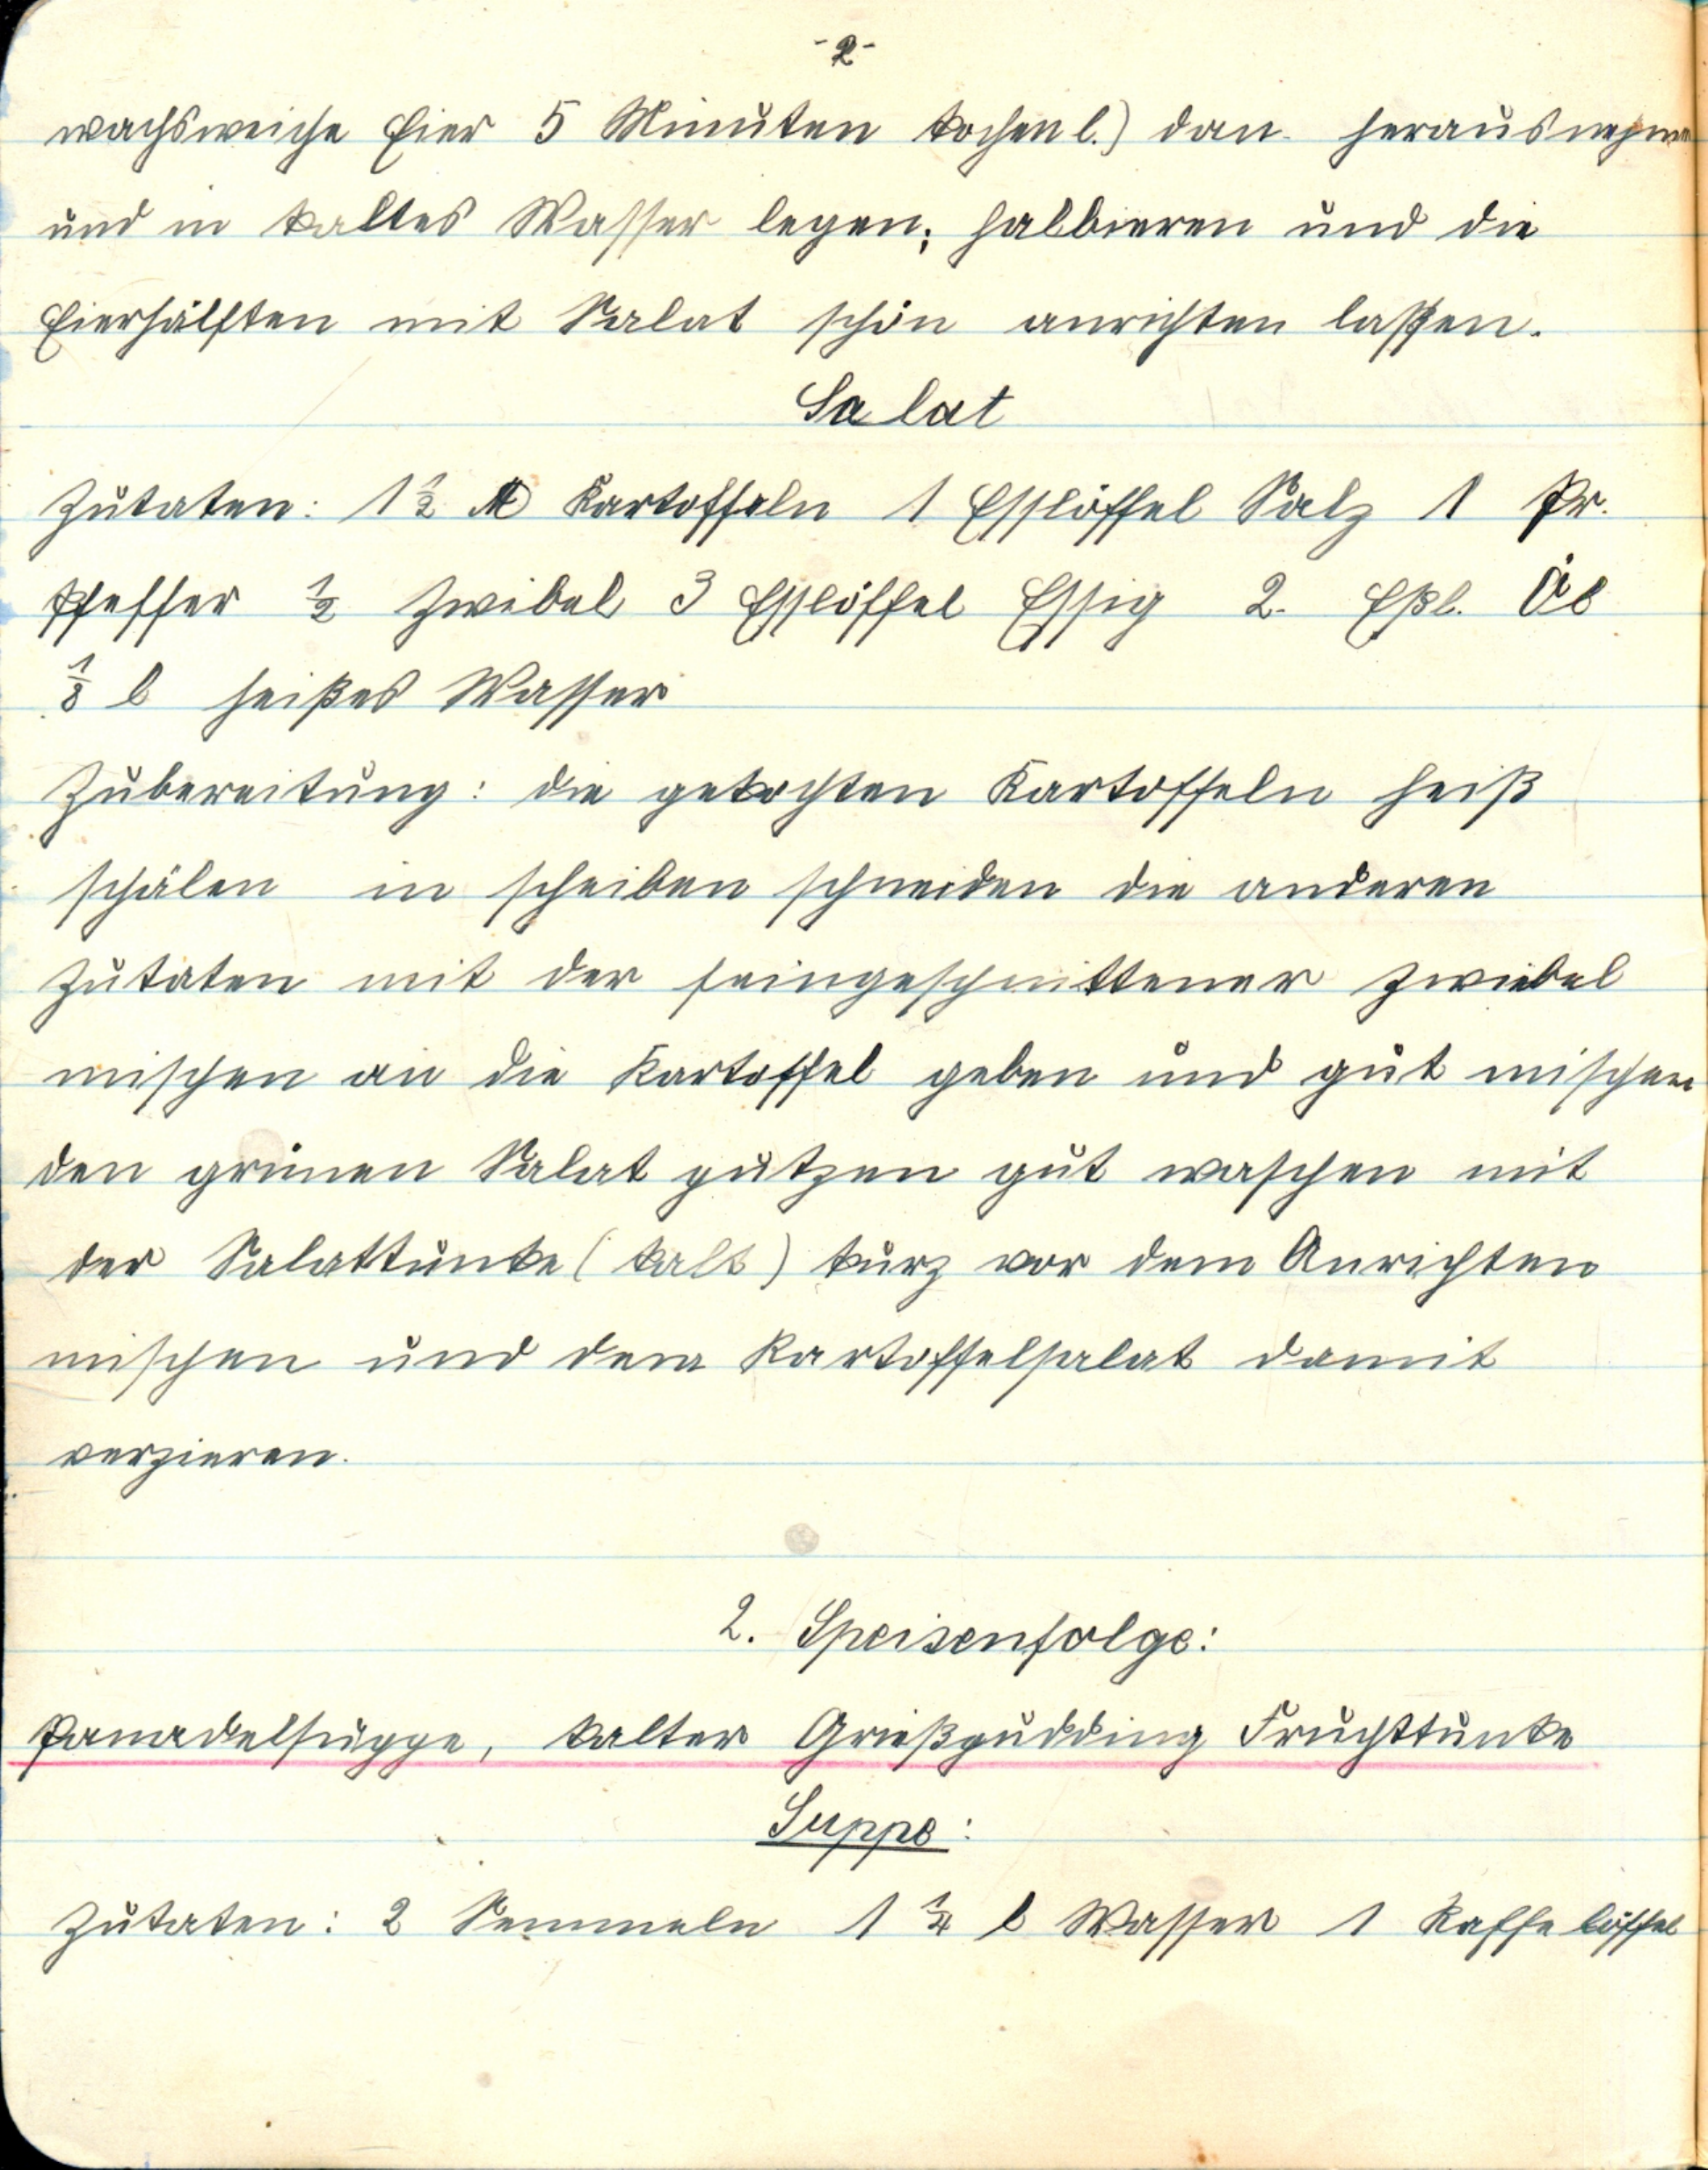 -2-
wachsweiche Eier 5 Minuten kochen l.) dan herausnehmen
und in kaltes Wasser legen; halbieren und die
Eierhälften mit Salat schön anrichten laßen.
Salat
Zutaten: 1½ ℔ Kartoffeln 1 Esslöffel Salz 1 Pr.
Pfeffer ½ Zwibel 3 Esslöffel Essig 2. Eßl. Öl
⅛ l heißes Wasser
Zubereitung: die gekochten Kartoffeln heiß
schälen in scheiben schneiden die anderen
Zutaten mit der feingeschnittener zwiebel
mischen an die Kartoffel geben und gut mischen
den grünen Salat putzen gut waschen mit
der Salattunke (kalt) kurz vor dem Anrichten
mischen und dem Kartoffelsalat damit
verzieren.
2. Speisenfolge:
Panadelsuppe, kalter Grießpudding Fruchttunke
Suppe:
Zutaten: 2 Semmeln 1 ¼ l Wasser 1 Kaffelöffel